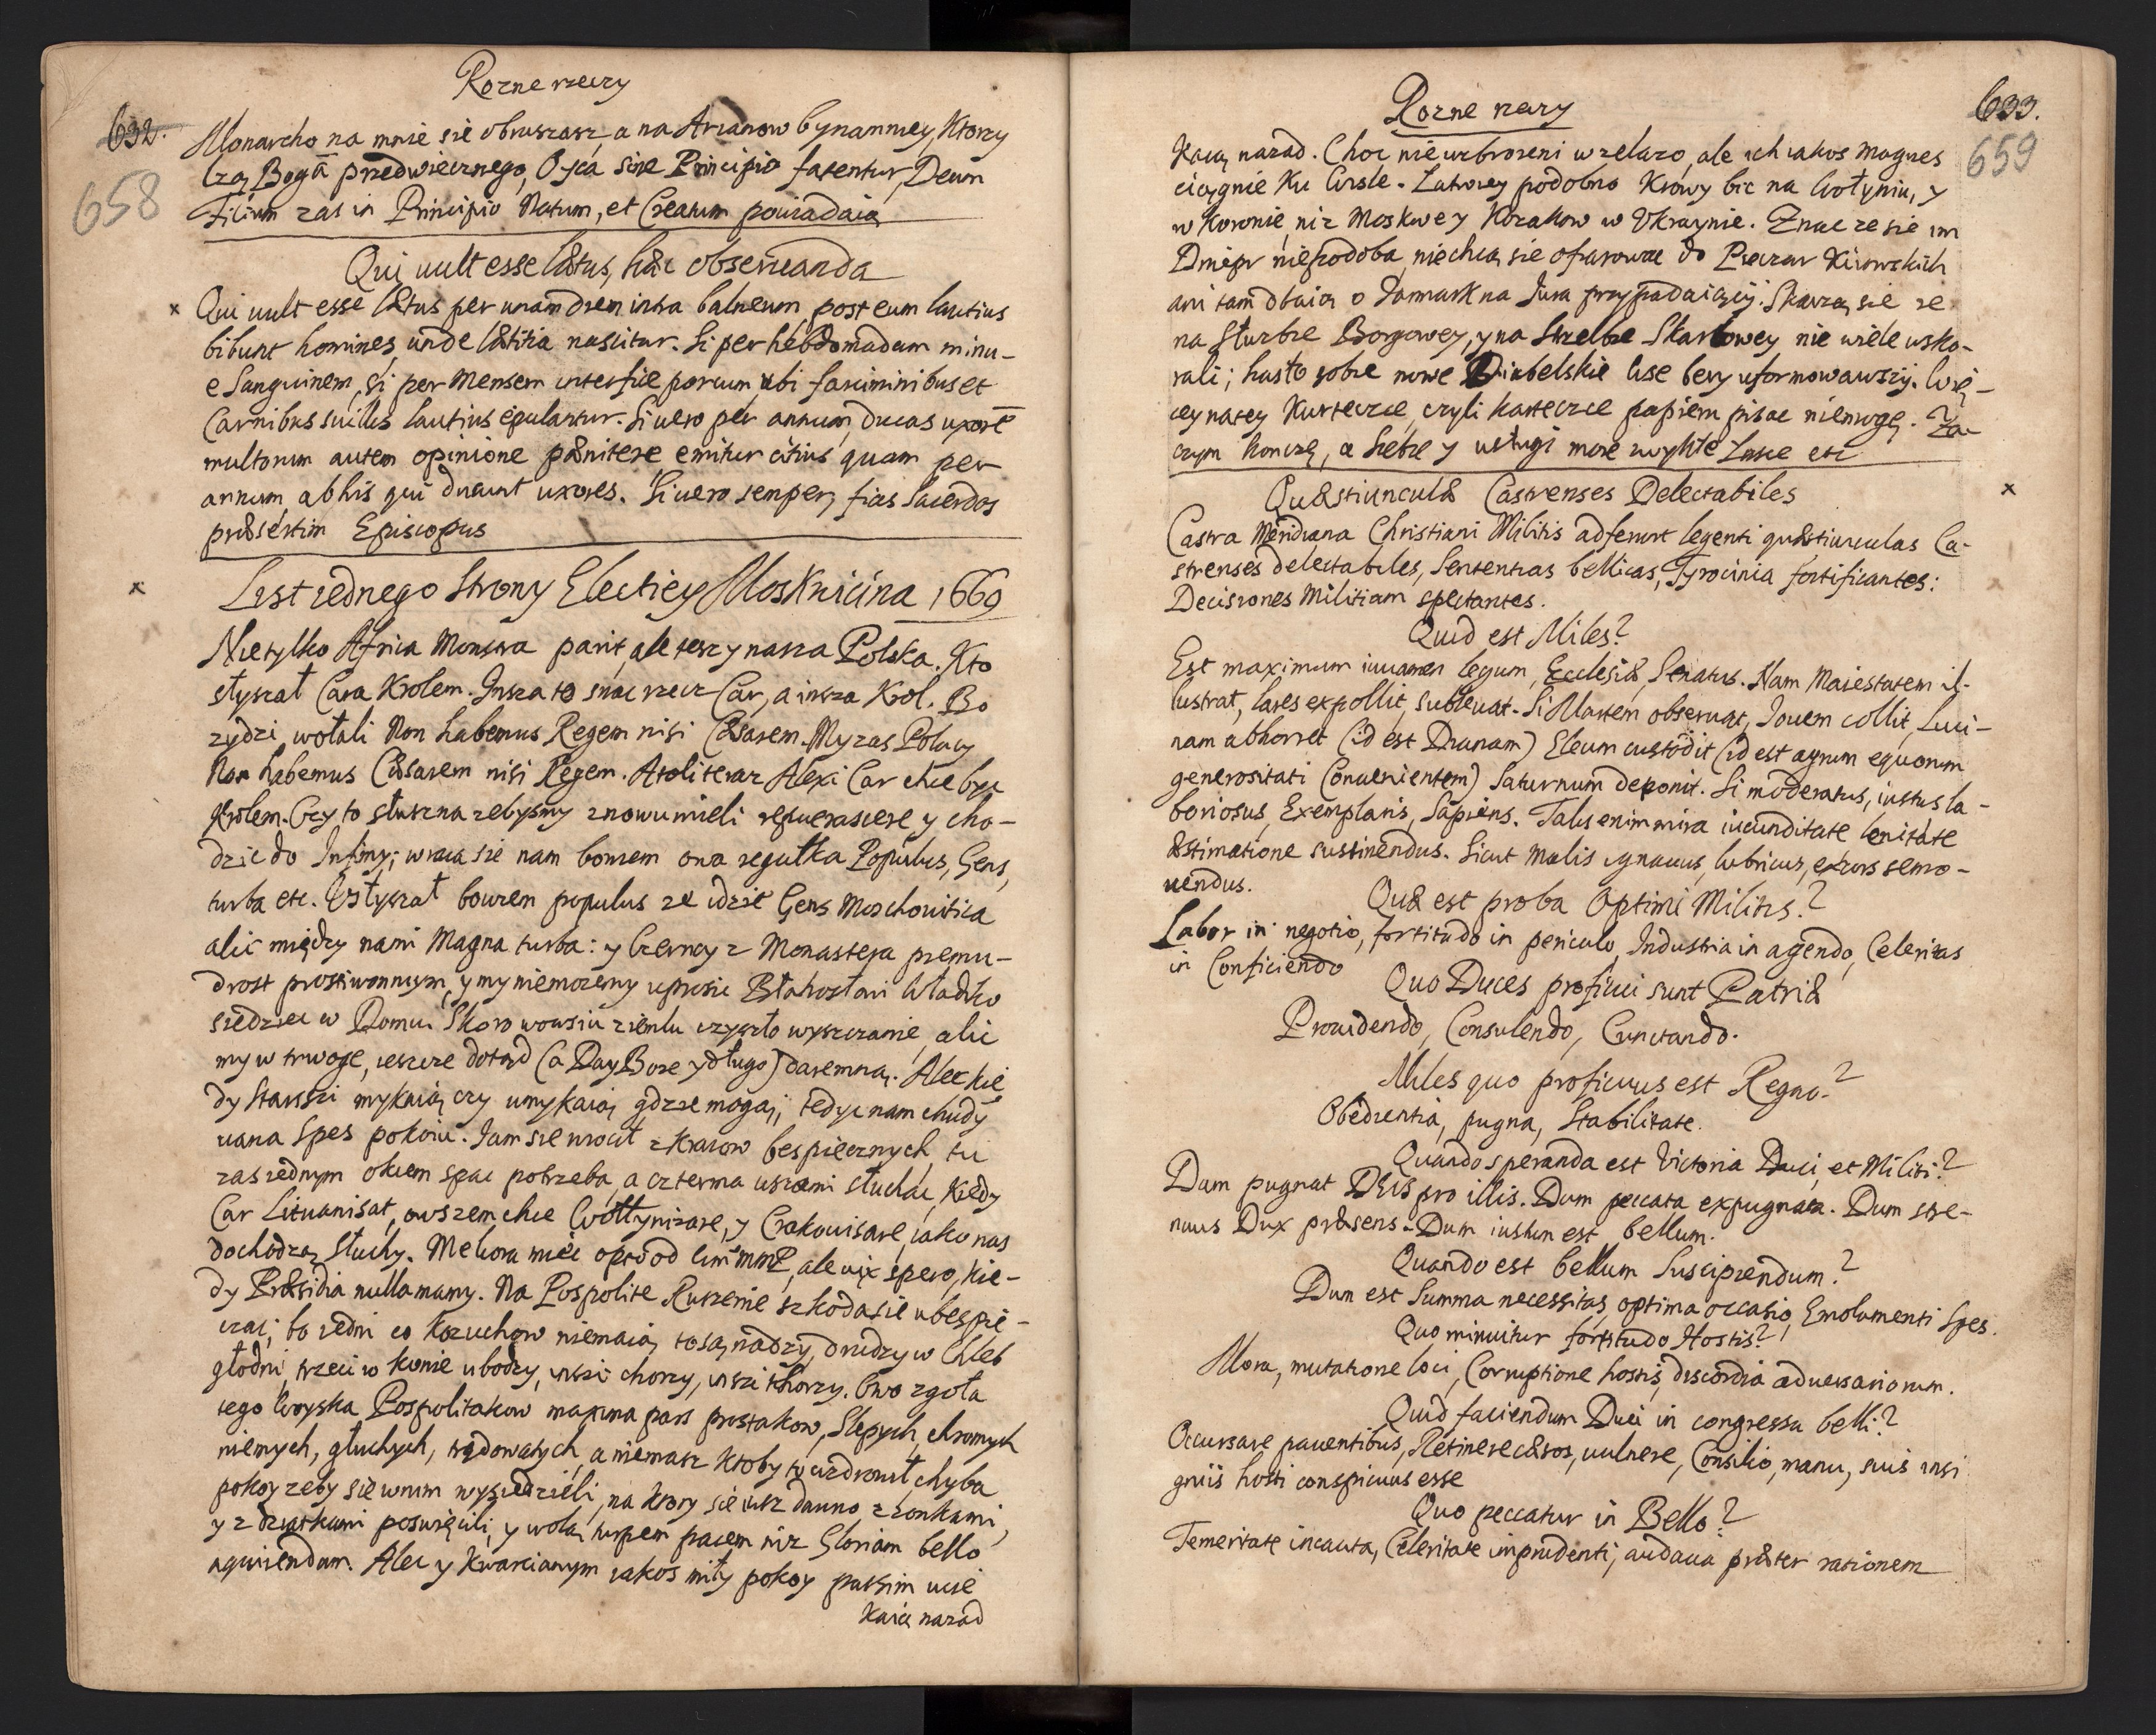 Rozne rzeczy
632.
658
Monarcho na mnie sie obruszasz, a na Arianow bynamniey, Ktorzy
lzą Bogā przedwiecznego, Oyca sine Principio fatentur, Deum
Filium zas in Principio Natum, et Creatum powiadaią
Qui uult esse lætus, hæc obseruanda
x Qui uult esse lætus per unam diem intra balneum, post eum lautius
bibunt homines, unde lætitia nascitur. Si per hebdomadam minu-
e Sanguinem, si per Mensem interfice porcum, ubi farciminibus et
Carnibus suillis lautius epulantur. Si uero per annum, ducas uxorē
multorum autem opinione pænitere emitur citius quam per
annum ab his qui ducunt uxores. Si uero semper, fias Sacerdos
præsertim Episcopus
x List iednego Strony Electiey Moskwicina 1669
Nie tylko Africa Monstra parit, ale tesz y nasza Polska. Kto
słyszał Cara Krolem. Insza to snac rzecz Car, a insza Krol. Bo
zydzi wołali Non habemus Regem nisi Cæsarem. My zas Polacy
Non habemus Cæsarem nisi Regem. Atoli teraz Alexi Car chce byc
Krolem. Czy to słuszna zebysmy znowu mieli repuerascere y cho-
dzic do Infimy; wraca sie nam bowiem ona regułka Populus, Gens,
turba etc. Usłyszał bowiem populus ze idzie Gens Moschouitica
alic między nami Magna turba: y Czerncy z Monastera premu-
drost prostiwonnym, y my niemozemy uprosic Błahosławi Władyko
siedziec w Domu. Skoro wowsiu ziemlu wyszło wyszczanie, alic
my w trwoge, ieszcze dotąd (a Day Boze y długo) daremną. Alec kie
dy Starszi mykaią czy umykaią gdzie mogą; tedyc nam chudy
uana Spes pokoiu. Iam sie wrocił z Kraiow bespiecznych, tu
zas iednym okiem spac potrzeba, a czterma uszami słuchac, kiedy
Car Lituanisat, owszem chce Wołłynizare, y Crakouisare, iako nas
dochodzą słuchy. Meliora miec opto od WmMP, ale uix spero, kie-
dy Præsidia nulla mamy. Na Pospolite Ruszenie szkoda sie ubespie-
czac; bo iedni co Kozuchow niemaią, to są nadzy, drudzy w Chleb
głodni, trzeci w Konie ubodzy, inszi chorzy, inszi tchorzy. Owo zgoła
tego Woyska Pospolitakow maxima pars prostakow, Slepych, chromych
niemych, głuchych, trędowatych, a niemasz ktoby to uzdrowił chyba
pokoy zeby sie w nim wysiedzieli, na ktory sie iusz dauno z zonkami,
y z dziatkami poswięcili, y wolą turpem pacem niz Gloriam bello
aquirendam. Alec y Kwarcianym iakos miły pokoy passim ucie
kaią nazad
Rozne rzeczy
633.
659
Kaią nazad. Choc nie uzbroieni w zelazo, ale ich iakos magnes
ciągnie ku Wisle. Łatwiey podobno Krowy bic na Wołyniu, y
w Koronie, niz Moskwe y Kozakow w Ukraynie. Znac ze sie im
Dniepr niepodoba, niechcą sie ofiarowac do Pieczar Kiiowskich
ani tam dbaią o Iarmark na Iura przypadaiący. Skarzą sie ze
na Słuzbie Borgowey, y na Strzelbie Skarbowey nie wiele wsko-
rali; hasło sobie nowe Diabelskie lese bery uformowawszy. Wię-
cey na tey Kurteczce, czyli karteczce papiem pisac niemogę. Za-
czym konczę, a Siebie y usługi moie zwykłe Łasce etc
Quæstiunculæ Castrenses Delectabiles x
Castra Meridiana Christiani Militis adferunt legenti quæstiunculas Ca-
strenses delectabiles, Sententias bellicas, Tyrocinia fortificantes:
Decisiones Militiam spectantes.
Quid est Miles?
Est maximum iuuamen legum, Ecclesiæ, Senatus. Nam Maiestatem il-
lustrat, lares expollit, subleuat. Si Martem obseruat, Iouem collit, Luci-
nam abhorret (id est Dianam) Eleum custodit (id est agrum equorum
generositati Conuenientem) Saturnum deponit. Si moderatus, iustus la-
boriosus, Exemplaris, Sapiens. Talis enim mira iucunditate lenitate
æstimatione sustinendus. Sicut malis ignauus, lubricus, excors remo-
uendus.
Quæ est proba Optimi Militis?
Labor in negotio, fortitudo in periculo, Industria in agendo, Celeritas
in Conficiendo
Quo Duces proficui sunt Patriæ
Prouidendo, Consulendo, Cunctando.
Miles quo proficuus est Regno?
Obedientia, pugna, Stabilitate.
Quando speranda est Victoria Duci, et Militi?
Dum pugnat DEUS pro illis. Dum peccata expugnata. Dum stre-
nuus Dux præsens. Dum iustum est bellum.
Quando est bellum Suscipiendum?
Dum est Summa necessitas, optima occasio, Emolumenti Spes.
Quo minuitur fortitudo Hostis?
Mora, mutatione loci, Corruptione hostis, discordia aduersariorum.
Quid faciendum Duci in congressu belli?
Occursare pauentibus, Retinere cæsos, uulnere, Consilio, manu, suis insi
gniis hosti conspicuus esse
Quo peccatur in Bello?
Temeritate incauta, Celeritate imprudenti, audacia præter rationem